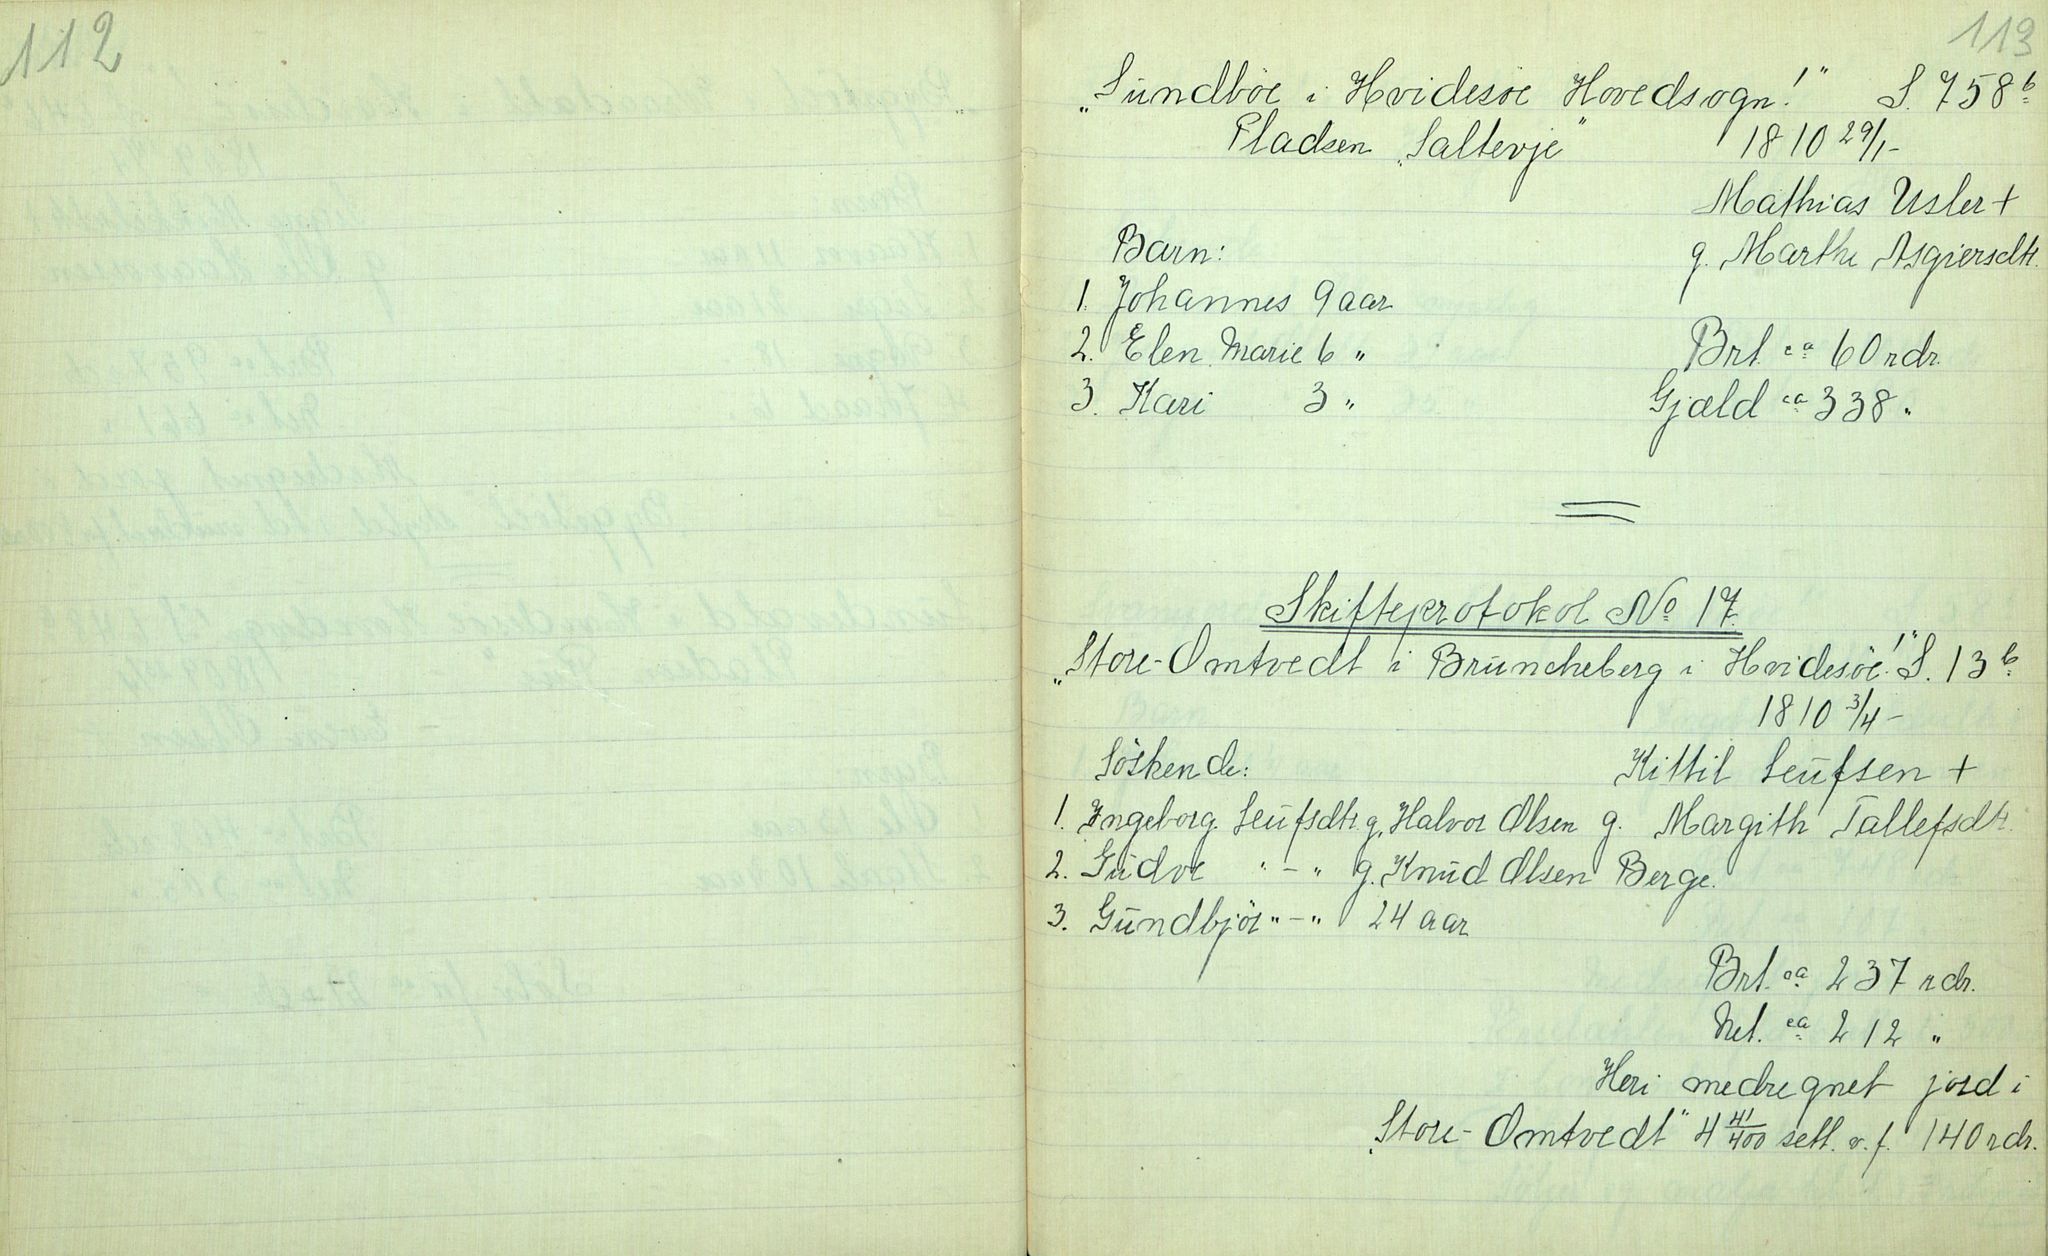 112
113
„Sundböe i Hvidesöe Hovedsogn!" S. 758 b
Pladsen „Saltevje" 1810 29/1-
Mathias Usler +
Barn: g. Marthe Asgiersdtr.
1. Johannes 9 aar
2. Elen Marie 6 „ Brt. ca 60 rdr.
3. Kari 3 „ Gjæld ca 338 „
Skifteprotokol No 17.
„Store-Omtvedt i Bruncheberg i Hvidesöe!" S. 13 b
1810 3/4-
Söskende: Kittil Leufsen +
1. Ingeborg Leufsdtr g. Halvor Olsen g. Margith Tallefsdtr.
2. Gudve „ - „ g. Knud Olsen Berge.
3. Gundbjör „ - „ 24 aar
Brt. ca 237 rdr.
Net. ca 212 „
Heri medregnet jord i
„Store-Omtvedt" 4 41/400 sett. v. f. 140 rdr.